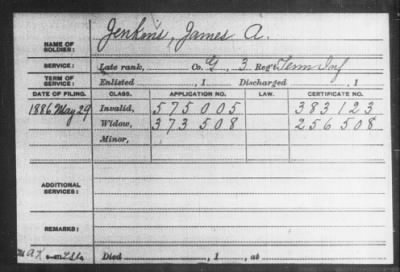 Jenkins, James A.
NAME OF SOLDIER:
SERVICE: Late rank, Co. G, 3 Reg't Tenn Inf
TERM OF SERVICE: Enlisted , 1 Discharged , 1
DATE OF FILING. CLASS. APPLICATION NO. LAW. CERTIFICATE NO.
1886 May 29 Invalid, 575005 383123
Widow, 373508 256508
Minor,
ADDITIONAL SERVICES:
REMARKS:
Died , 1 , at